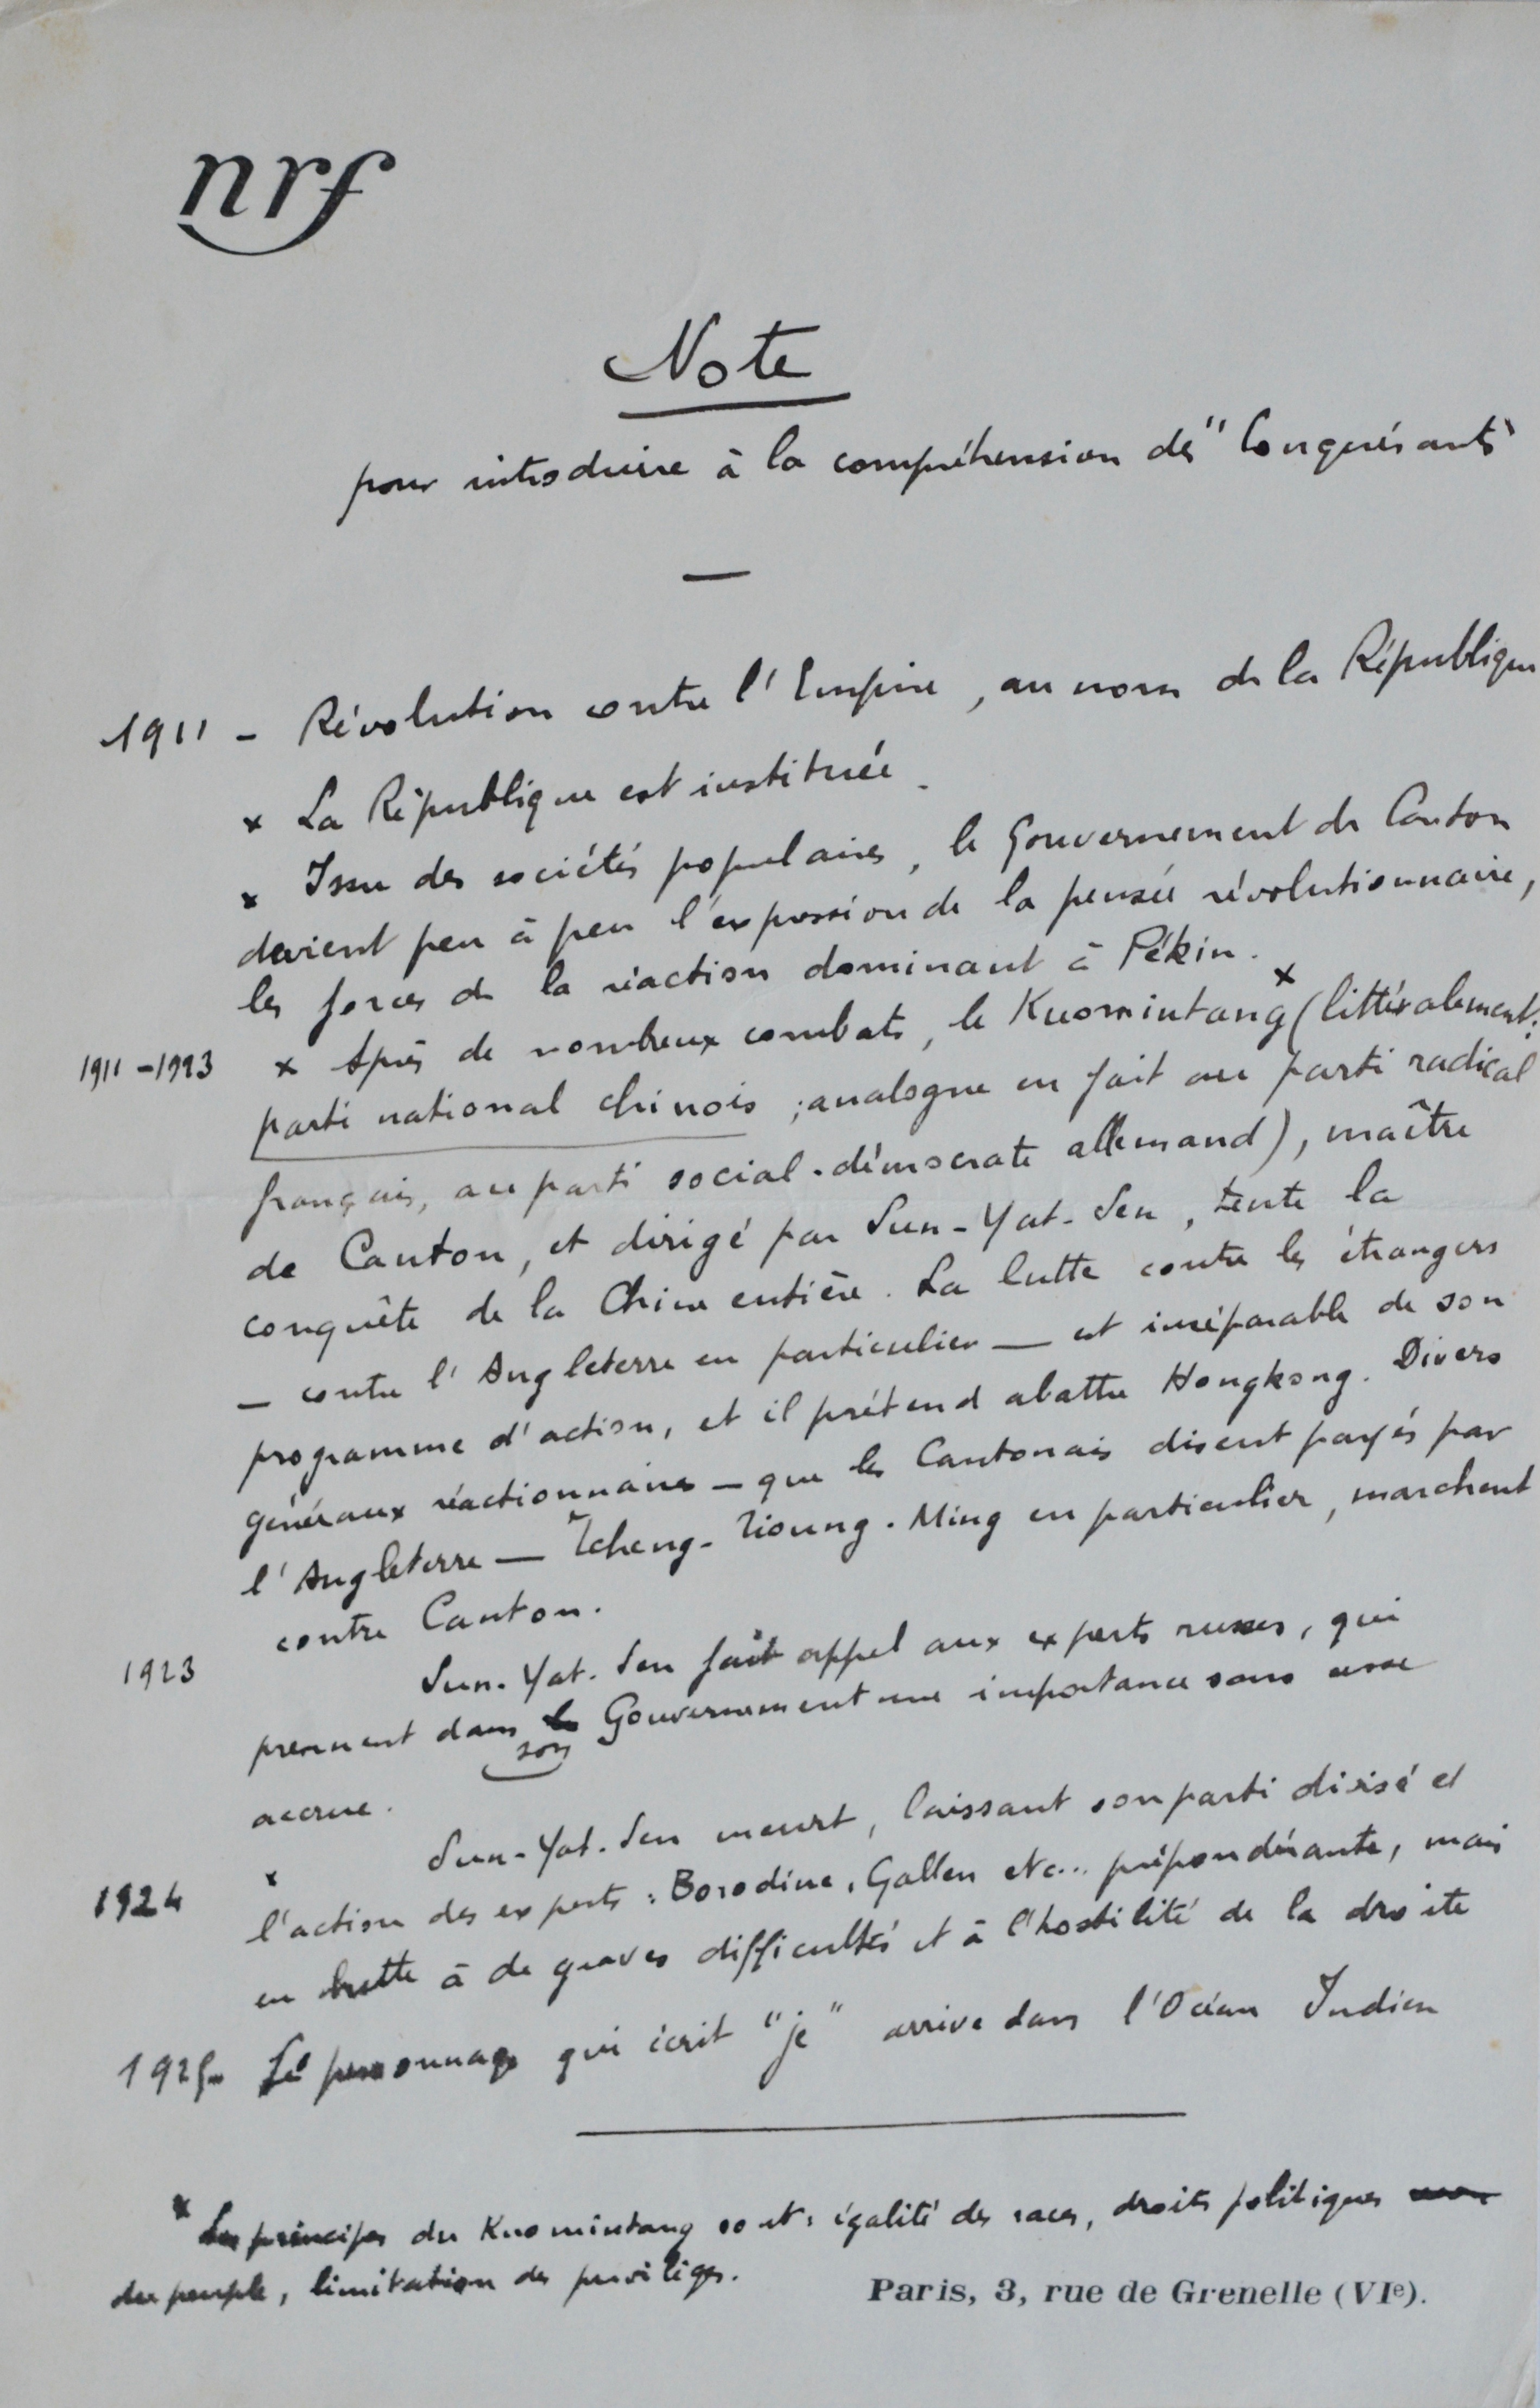 nrf
Note
pour introduire à la compréhension des "Conquérants"
1911 - Révolution contre l'Empire, au nom de la République
x La République est instituée.
x Issu des sociétés populaires, le Gouvernement de Canton
devient peu à peu l'expression de la pensée révolutionnaire,
les forces de la réaction dominant à Pékin.
1911-1923 x Après de nombreux combats, le Kuomintang x (littéralement:
parti national chinois ; analogue en fait au parti radical
français, au parti social-démocrate allemand), maître
de Canton, et dirigé par Sun-Yat-Sen, tente la
conquête de la Chine entière. La lutte contre les étrangers
— contre l'Angleterre en particulier — est inséparable de son
programme d'action, et il prétend abattre Hongkong. Divers
généraux réactionnaires — que les Cantonais disent payés par
l'Angleterre — Tcheng-Tioung-Ming en particulier, marchent
contre Canton.
1923 Sun-Yat-Sen fait appel aux experts russes, qui
prennent dans son Gouvernement une importance sans cesse
accrue.
1924 x Sun-Yat-Sen meurt, laissant son parti divisé et
l'action des experts : Borodine, Gallen etc... prépondérante, mais
en butte à de graves difficultés et à l'hostilité de la droite
1925 - Le personnage qui écrit "je" arrive dans l'Océan Indien
x Les principes du Kuomintang sont : égalité des races, droits politiques
du peuple, limitation des privilèges.
Paris, 3, rue de Grenelle (VIe).